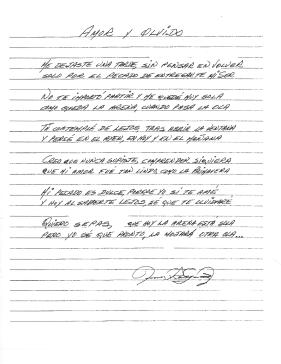 AMOR Y OLVIDO
ME DEJASTE UNA TARDE, SIN PENSAR EN VOLVER
SOLO POR EL PECADO DE ENTREGARTE MI SER
NO TE IMPORTÓ PARTIR Y ME QUEDÉ MUY SOLA
COMO QUEDA LA ARENA, CUANDO PASA LA OLA
TE CONTEMPLÉ DE LEJOS, TRAS ABRIR LA VENTANA
Y PENSÉ EN EL AYER, EN HOY Y EN EL MAÑANA
CREO QUE NUNCA SUPISTE, COMPRENDER SIQUIERA
QUE MI AMOR FUE TAN LINDO COMO LA PRIMAVERA
MI PECADO ES DULCE, PORQUE YO SI TE AMÉ
Y HOY AL SABERTE LEJOS SE QUE TE OLVIDARÉ
QUIERO SEPAS, QUE HOY LA ARENA ESTÁ SOLA
PERO YO SÉ QUE PRONTO, LA MOJARÁ OTRA OLA...